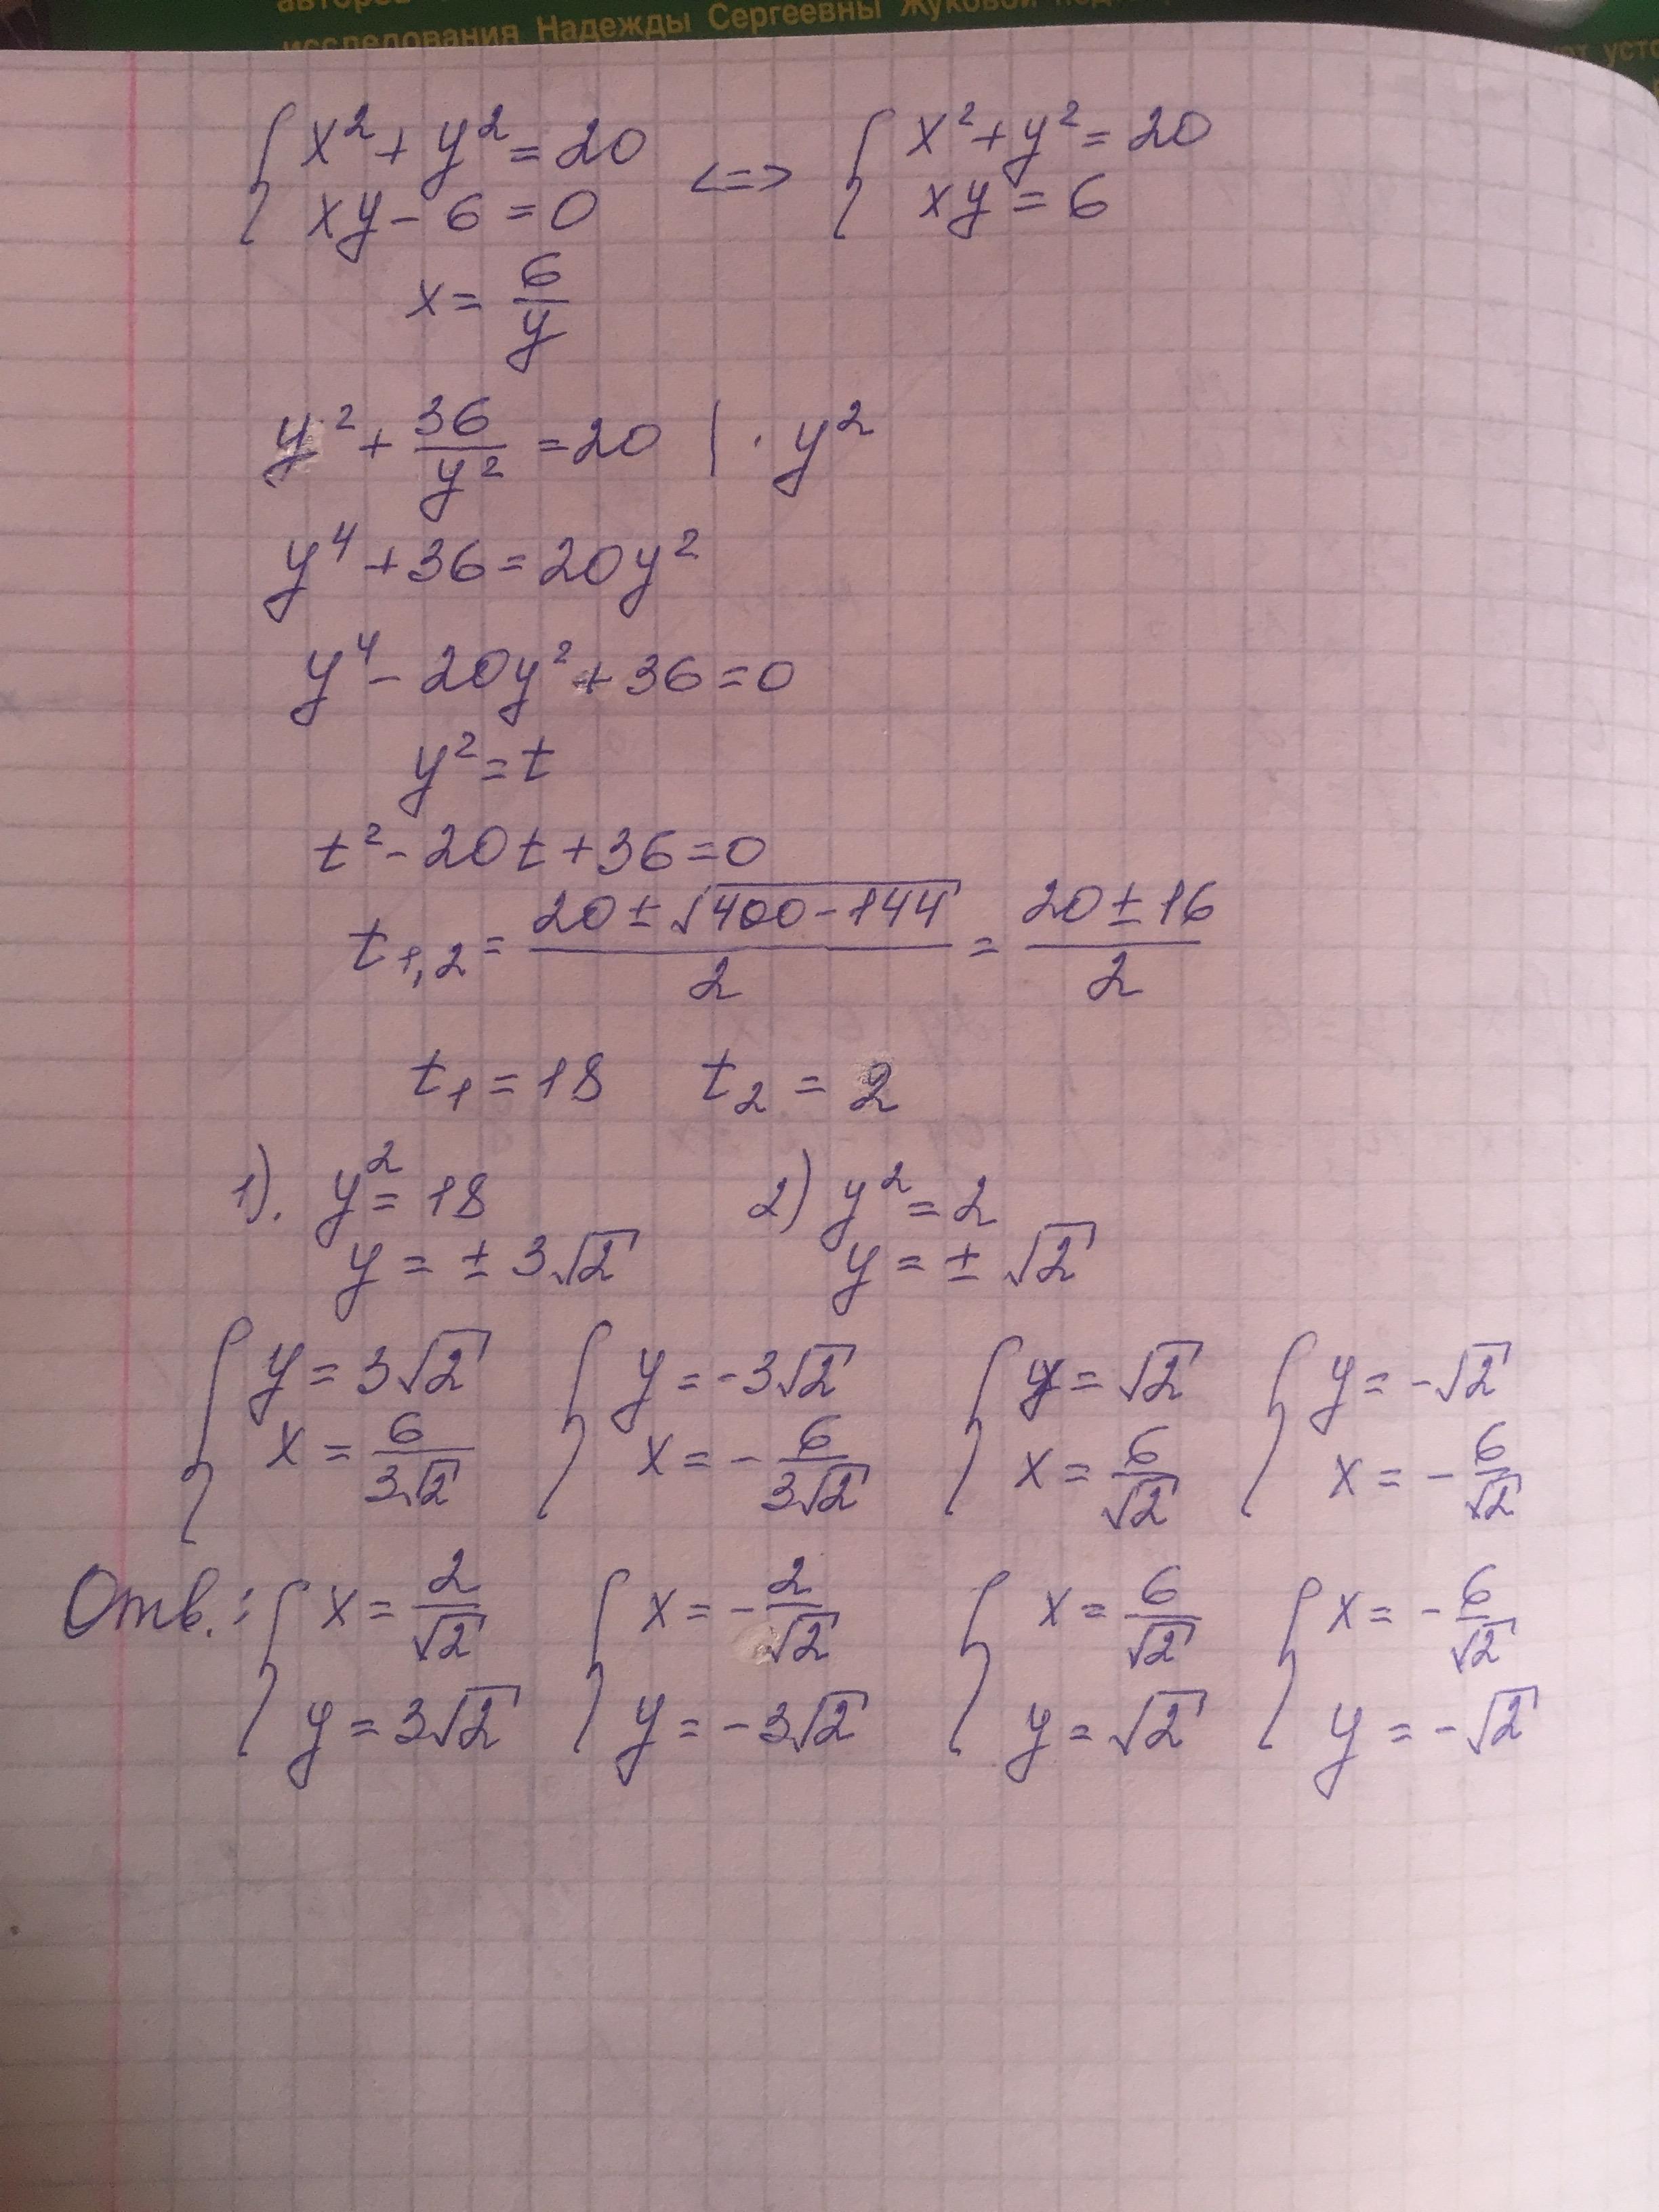 исследования Надежды Сергеевны Жуковой
{ x² + y² = 20 <=> { x² + y² = 20
xy - 6 = 0 xy = 6
x = 6/y
y² + 36/y² = 20 | · y²
y⁴ + 36 = 20y²
y⁴ - 20y² + 36 = 0
y² = t
t² - 20t + 36 = 0
t₁,₂ = (20 ± √(400 - 144))/2 = (20 ± 16)/2
t₁ = 18 t₂ = 2
1). y² = 18 2) y² = 2
y = ± 3√2 y = ± √2
{ y = 3√2 { y = -3√2 { y = √2 { y = -√2
x = 6/(3√2) x = - 6/(3√2) x = 6/√2 x = - 6/√2
Отв.: { x = 2/√2 { x = - 2/√2 { x = 6/√2 { x = - 6/√2
y = 3√2 y = -3√2 y = √2 y = -√2